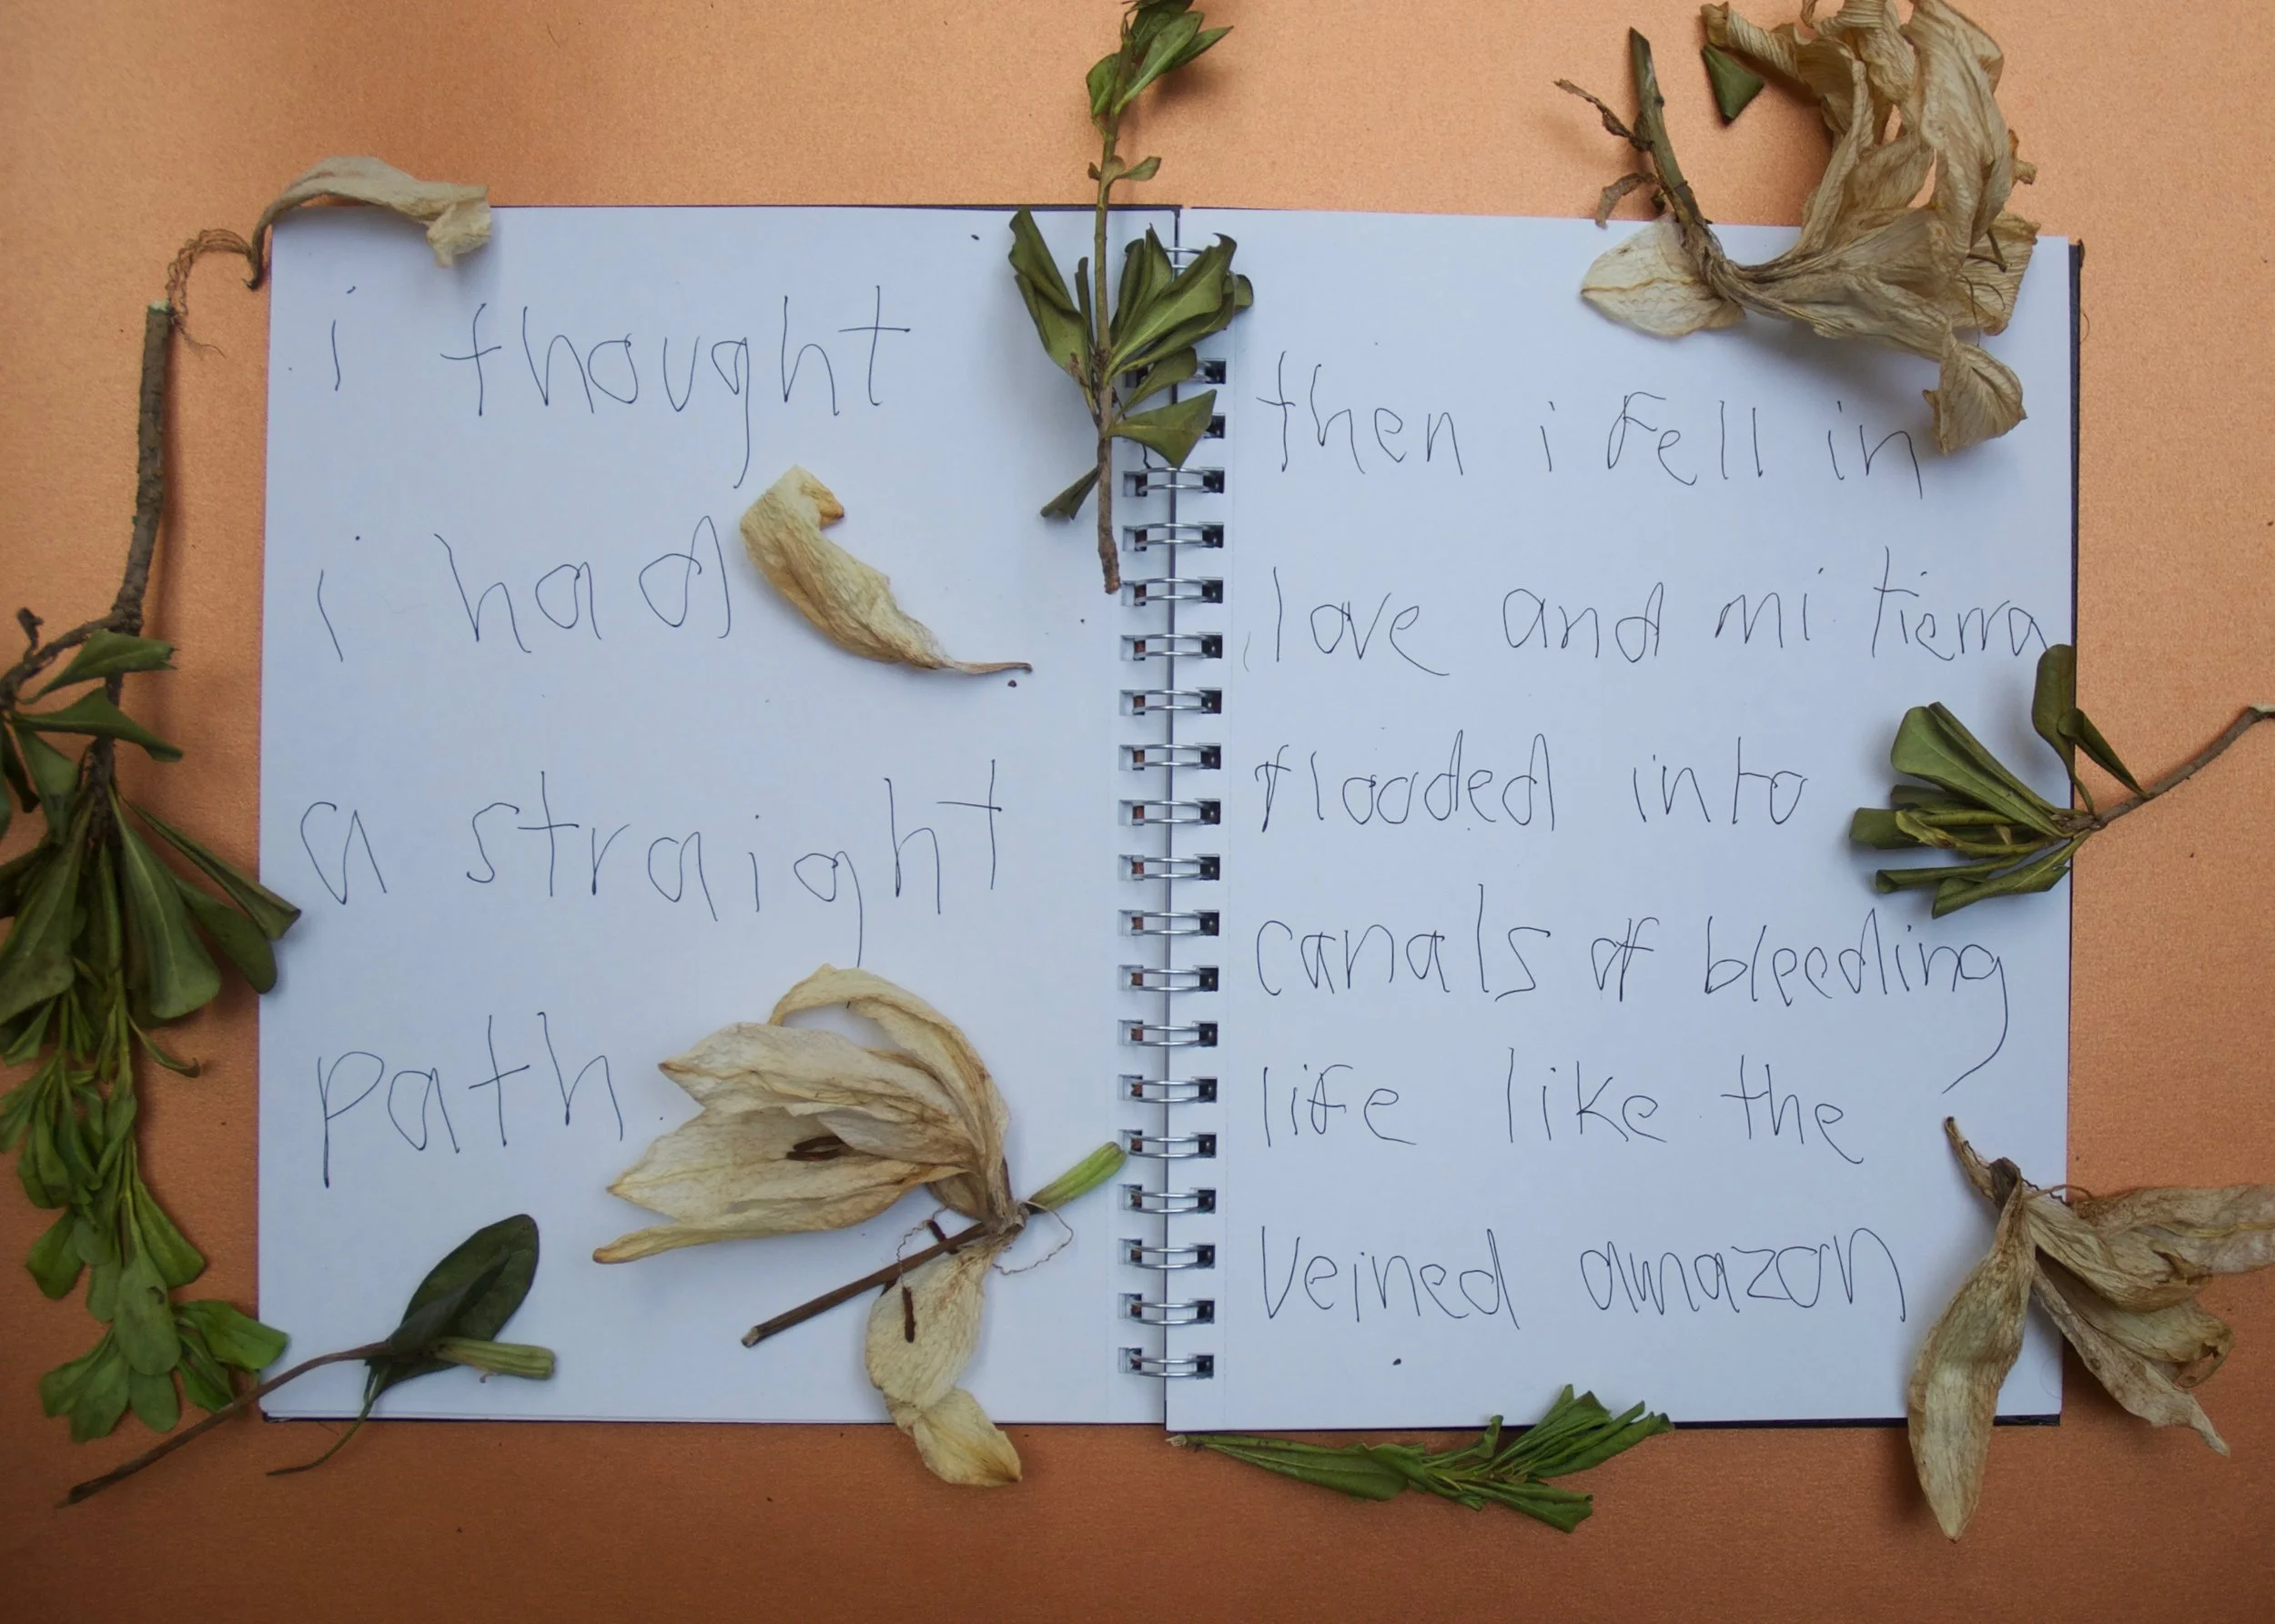 i thought
i had
a straight
path
then i fell in
love and mi tierra
flooded into
canals of bleeding
life like the
veined amazon